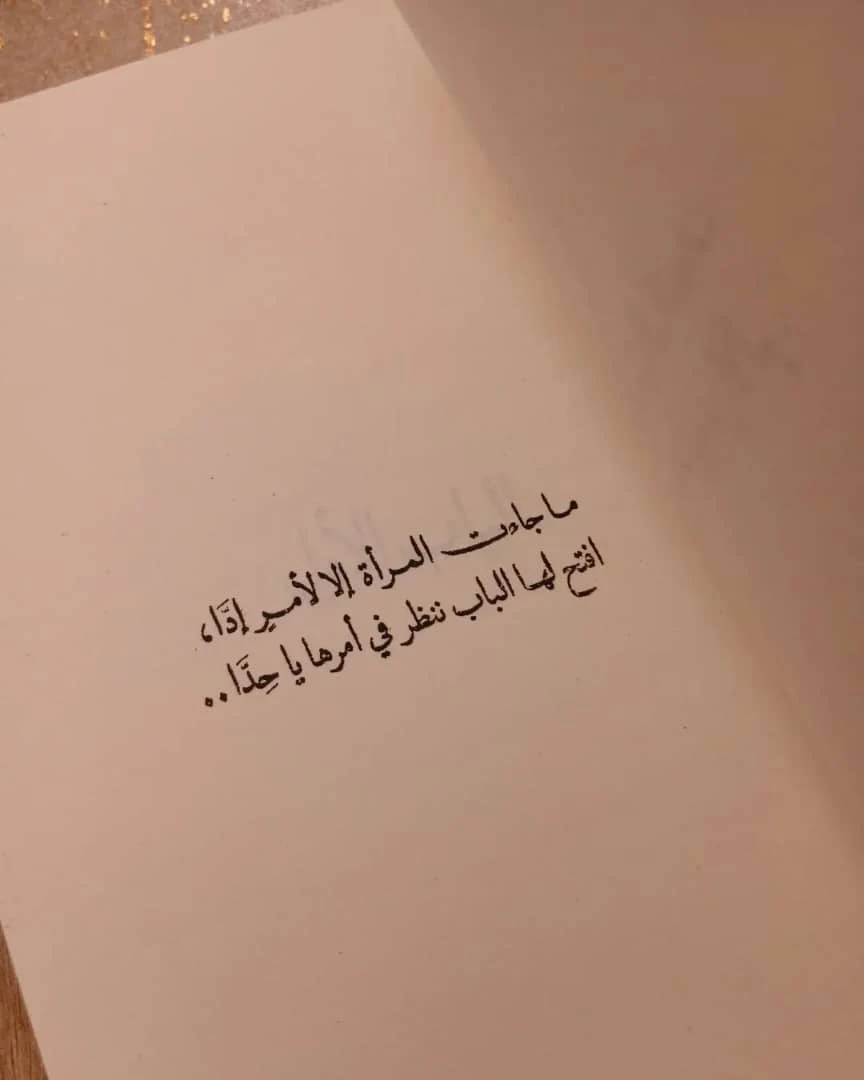 ما جاءت المرأة إلا لأمرٍ إدَّا،
افتح لها الباب ننظر في أمرها يا حِدَّا..